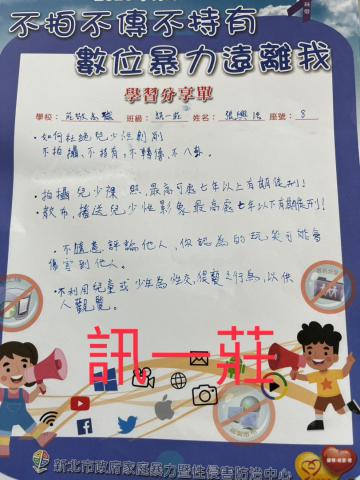 不拍不傳不持有
數位暴力遠離我
學習分享單
學校：莊敬高職 班級：訊一莊 姓名：張興浩 座號：8
・如何杜絕兒少性剝削
不拍攝、不持有、不轉傳、不八卦。
・拍攝兒少裸照,最高可處七年以上有期徒刑!
・散布、播送兒少性影象最高處七年以下有期徒刑!
・不隨意評論他人，你認為的玩笑可能會
傷害到他人。
・不利用兒童或少年為性交,猥褻之行為,以供
人觀覽。
訊一莊
新北市政府家庭暴力暨性侵害防治中心